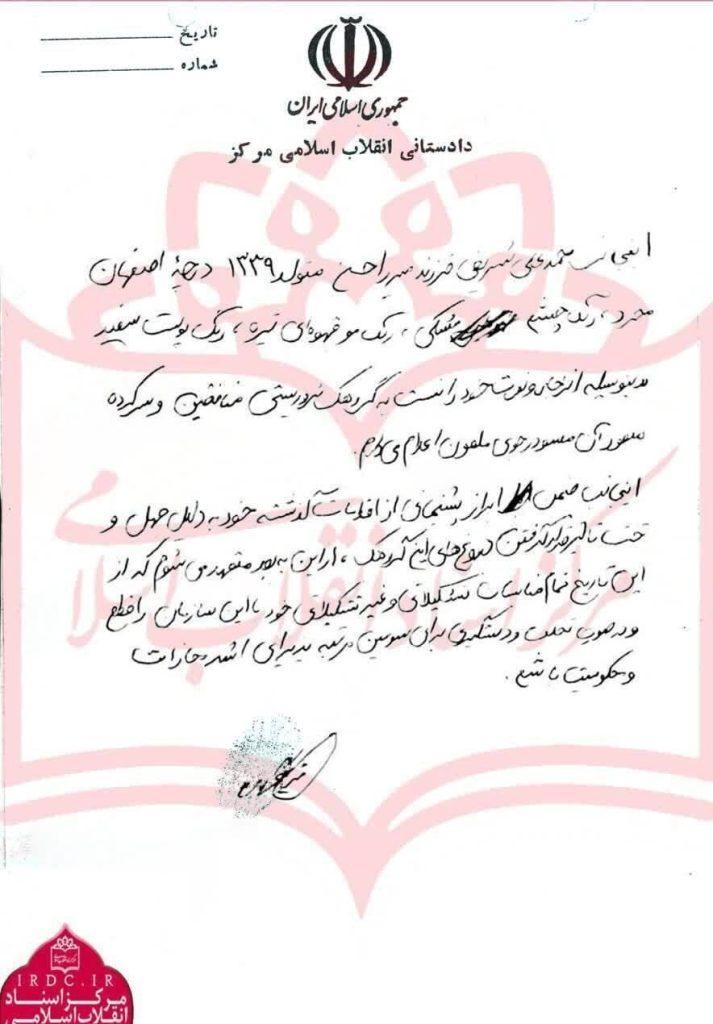 تاریخ
شماره
جمهوری اسلامی ایران
دادستانی انقلاب اسلامی مرکز
اینجانب محمدعلی شریفی فرزند میرزا حسن متولد ۱۳۳۹ درجهٔ اصفهان
مجرد، رنگ چشم مشکی، رنگ مو قهوه‌ای تیره، رنگ پوست سفید
بدینوسیله انزجار و نفرت خود را نسبت به گروهک تروریستی منافقین و سرکرده
معدوم آن مسعود رجوی ملعون اعلام می‌دارم.
اینجانب ضمن ابراز پشیمانی از اقدامات گذشته خود به دلیل جهل و
تحت تاثیر قرار گرفتن دروغ‌های این گروهک، از این به بعد متعهد می‌شوم که از
این تاریخ تمام مناسبات تشکیلاتی و غیر تشکیلاتی خود با این سازمان را قطع
و در صورت تخلف و دستگیری برای سومین مرتبه پذیرای اشد مجازات
و محکومیت باشم.
مرکز اسناد انقلاب اسلامی
IRDC.IR
مرکز اسناد
انقلاب اسلامی